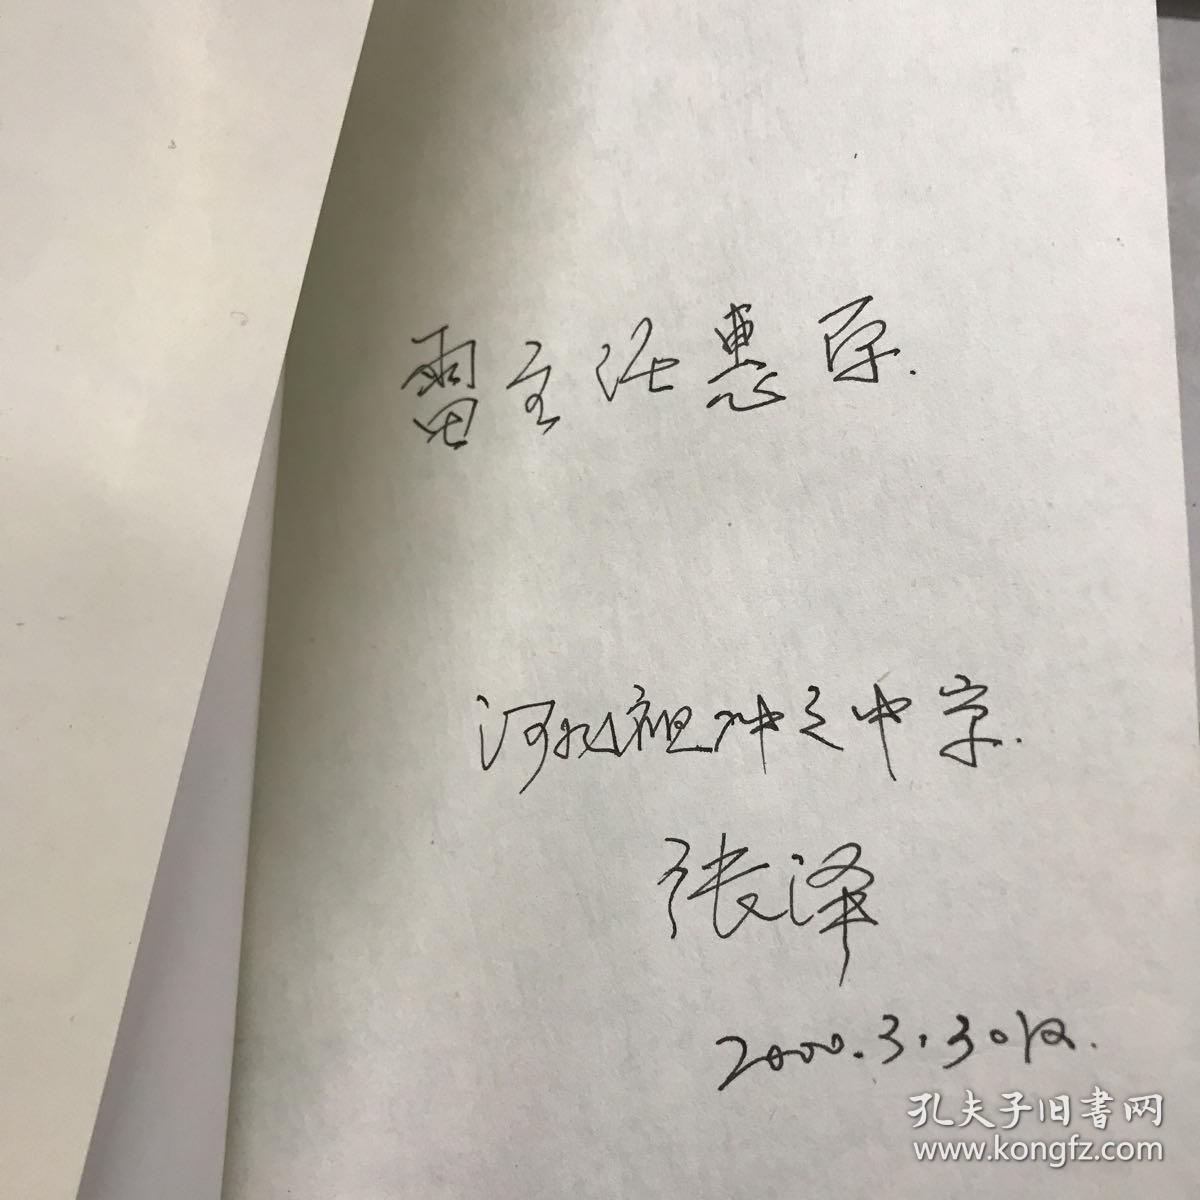 雷主任惠存.
河北祖冲之中学.
张泽
2000.3.30日.
孔夫子旧書网
www.kongfz.com